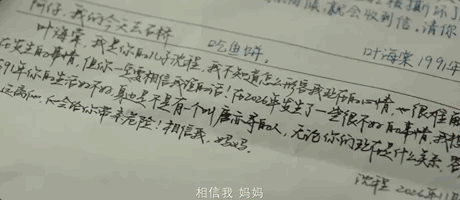 就会收到信。请你
阿仔,我的今天去石桥
吃鱼饼。
叶海棠 1991年
叶海棠,我是你的儿子沈程,我不知道怎么形容我现在的心情,也很难
在发生的事情,但你一定要相信我说的话!在2026年发生了一些很不好的事情,我想
91年你的生活好不好,身边是不是有个叫唐示导的人,无论你们现在是什么关系,
远离他,他会给你带来危险!相信我,妈妈。
沈程 2026年11月
相信我 妈妈